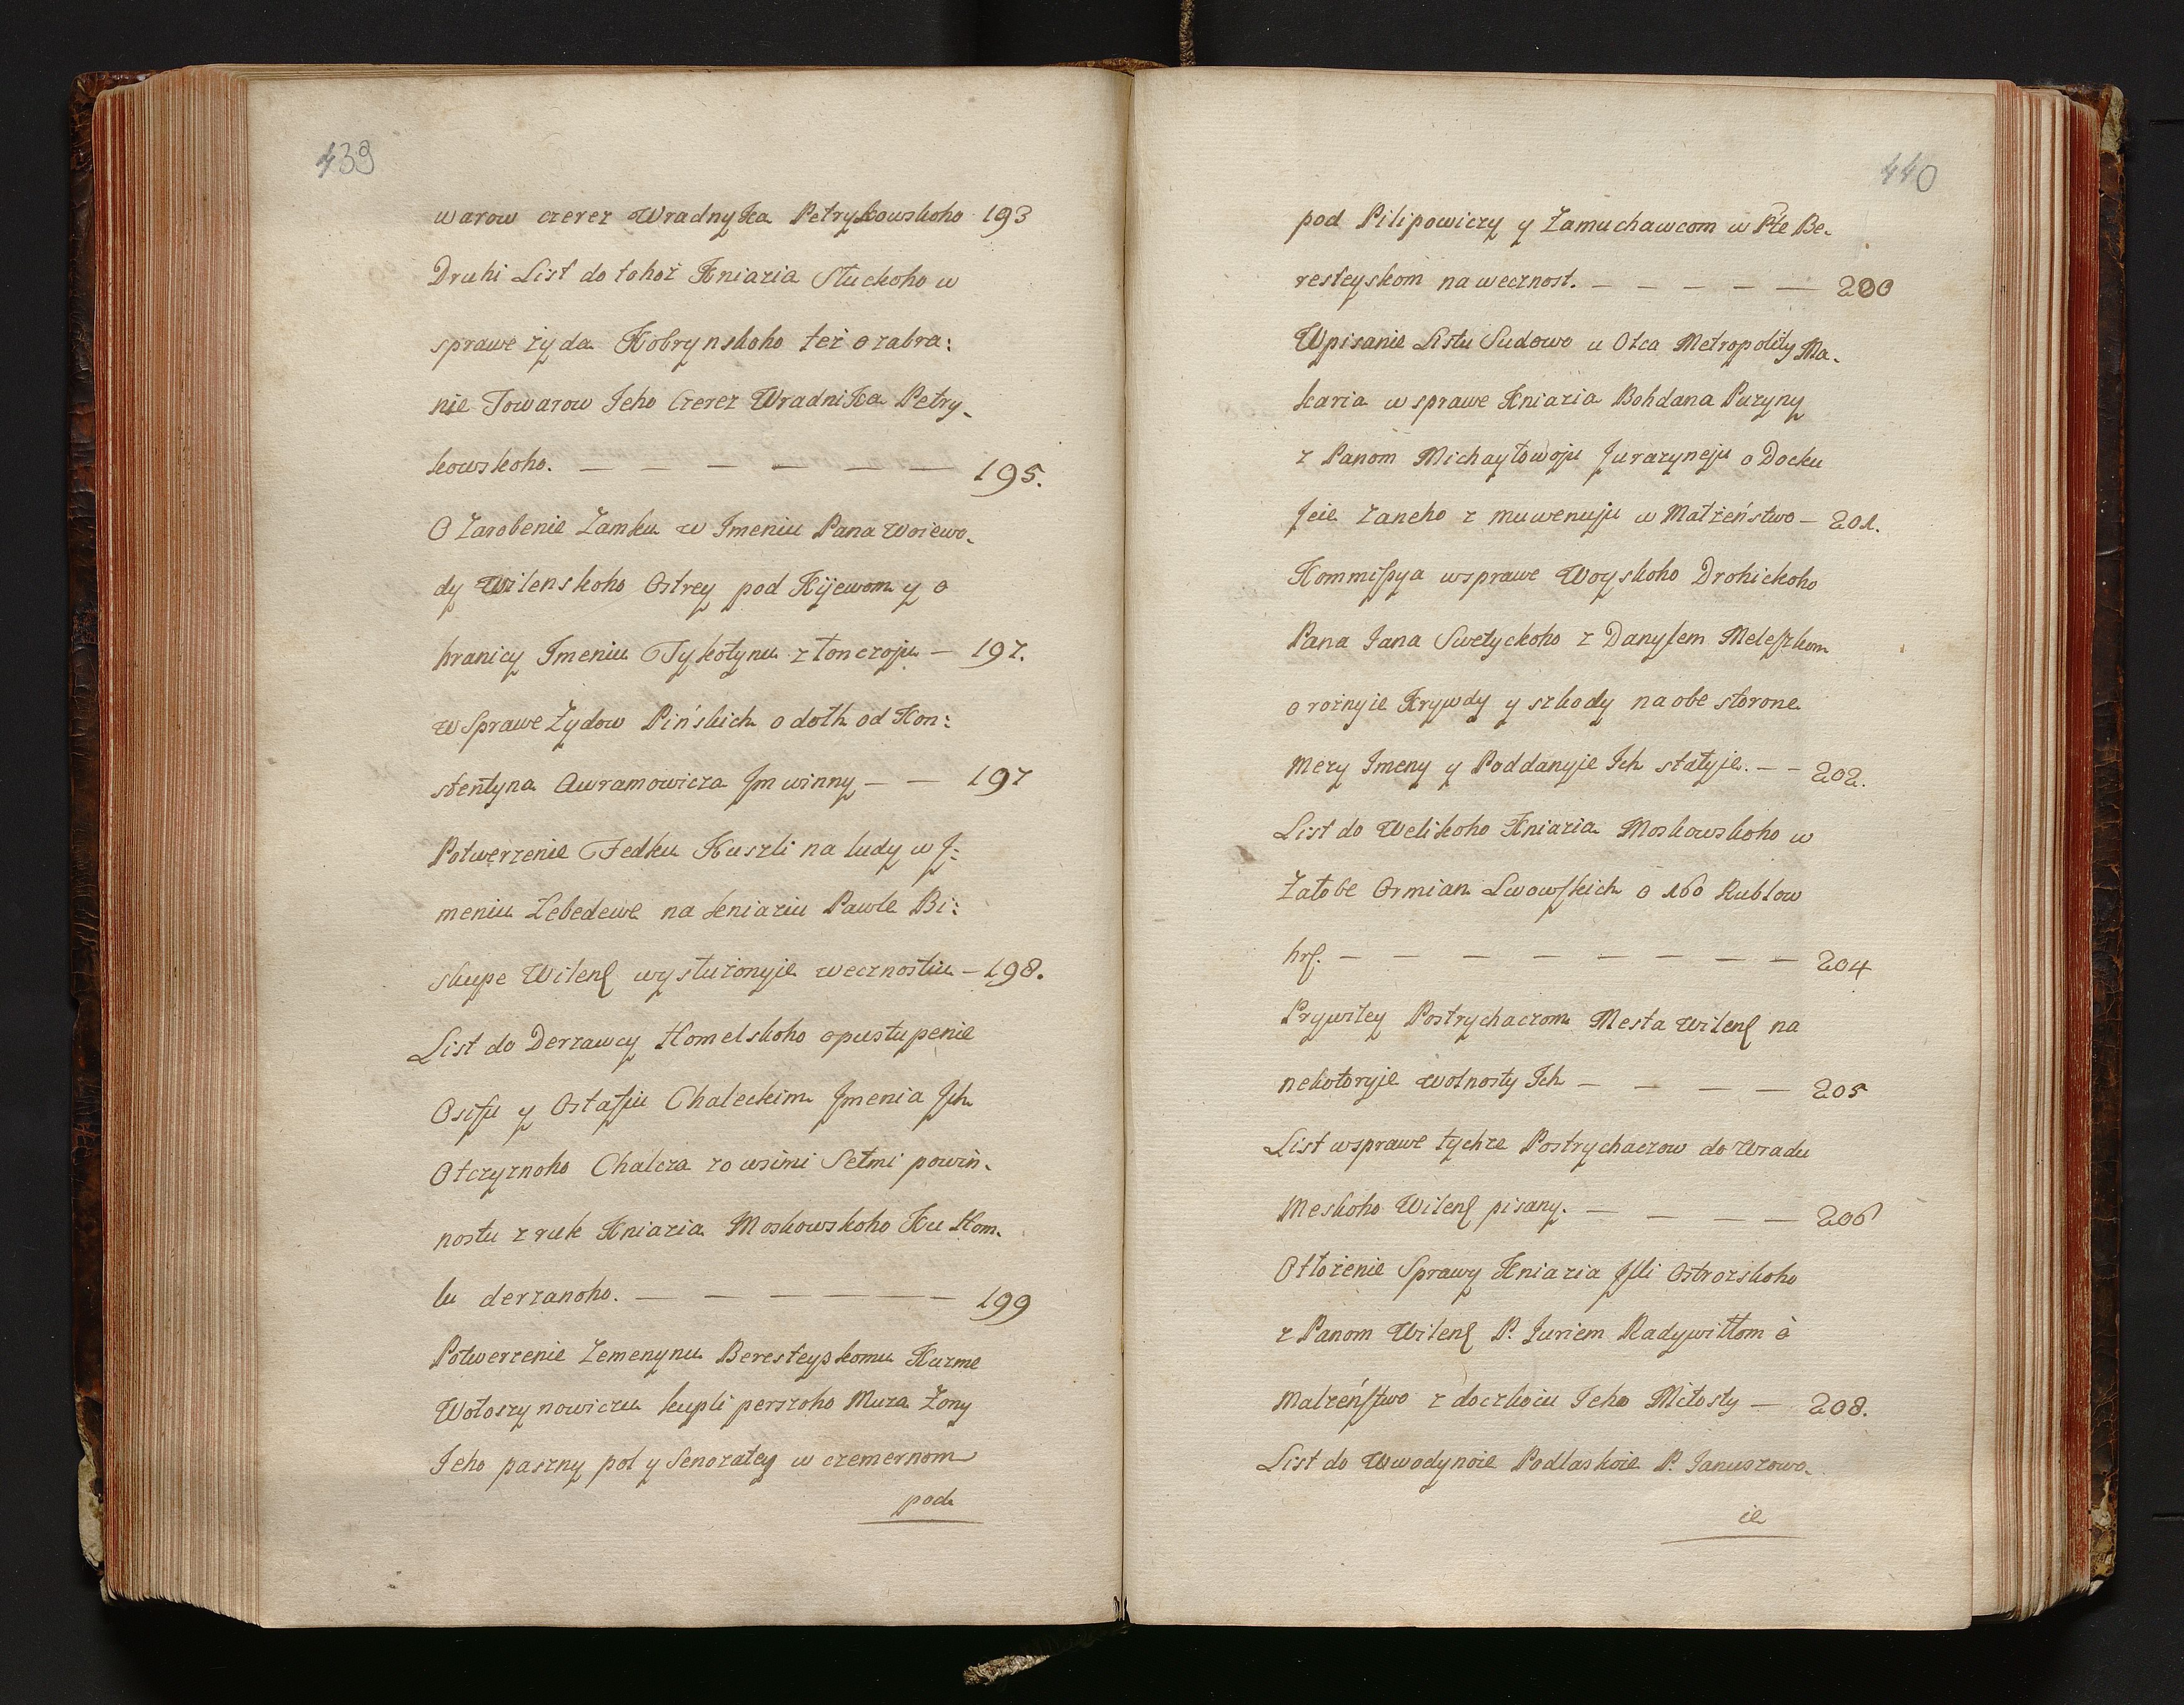 439
warow czerez Wradnyka Petrykowskoho 193
Druhi List do tohoż Kniazia Słuckoho w
sprawe żyda Kobrynskoho też o zabra:
nie Towarow Jeho Czerez Wradnika Petry-
kowskoho. — — — — — — 195.
O Zarobenie Zamku w Imeniu Pana Woiewo-
dy Wilenskoho Ostrey pod Kijewom y o
hranicy Imeniu Tykotynu z łonczoju — 197.
w Sprawe Żydow Pińskich o dołh od Kon:
stentyna Awramowicza Jm winny — — 197
Potwerzenie Fedku Kuszli na ludy w J:
meniu Lebedewe na kniaziu Pawle Bi:
skupe Wilenſ wysłużonyie wecznostiu — 198.
List do Derzawcy Homelskoho opustupenie
Osifu y Ostafiu Chaleckim Jmenia Jch
Otczyznoho Chalcza zo wsimi Setmi powin-
nostu z ruk Kniazia Moskowskoho Ku Hom-
lu derzanoho. — — — — — — 199
Potwerzenie Zemenynu Beresteyskomu Kuzme
Wołoszynowiczu kupli perszoho Muza Żony
Jeho paszny pol y Senozatey w czemernom
pod
440
pod Pilipowiczy y Zamuchawcom w Pte Be-
resteyskom na wecznost. — — — — — 200
Wpisanie Listu Sudowo u Otca Metropolity Ma-
karia w sprawe Kniazia Bohdana Puzyny
z Panom Michayłowoju Jurazyneju o Docku
Jeie Zaneho z muwenuju w Małżeństwo — 201.
Kommiſsya wsprawe Woyskoho Drohickoho
Pana Jana Swetyckoho z Danyſem Meleſzkom
o rożnyie Krywdy y szkody na obe storone
mezy Imeny y Poddanyie Jch stałyie. — — 202.
List do Welikoho Kniazia Moskowskoho w
Żałobe Ormian Lwowſkich o 160 Rublow
hrſ. — — — — — — — — 204
Prywiley Postrychaczom Mesta Wilenſ na
nekotoryie wolnosty Jch — — — — 205
List wsprawe tychże Postrychaczow do Wradu
Meskoho Wilenſ pisany. — — — — 206
Otłożenie Sprawy Kniazia Jlli Ostrozskoho
z Panom Wilenſ P. Juriem Radywiłłom o
Malżenſtwo z doczkoiu Jeho Miłosty — 208.
List do Wwodynoie Podlaskoie P. Januszowo-
ie